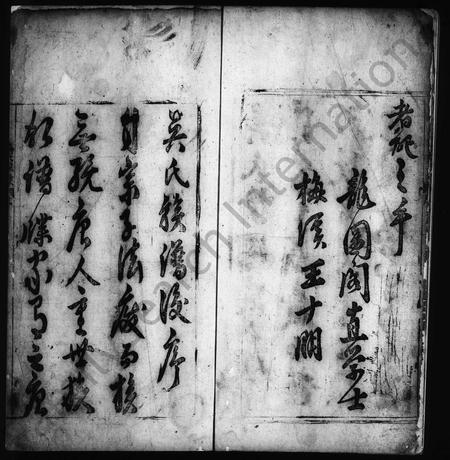 者祀之乎
龍圖閣直學士
梅溪王十朋
吳氏族譜後序
自宗子法廢而族
無統唐人重世族
故譜牒家有之唐